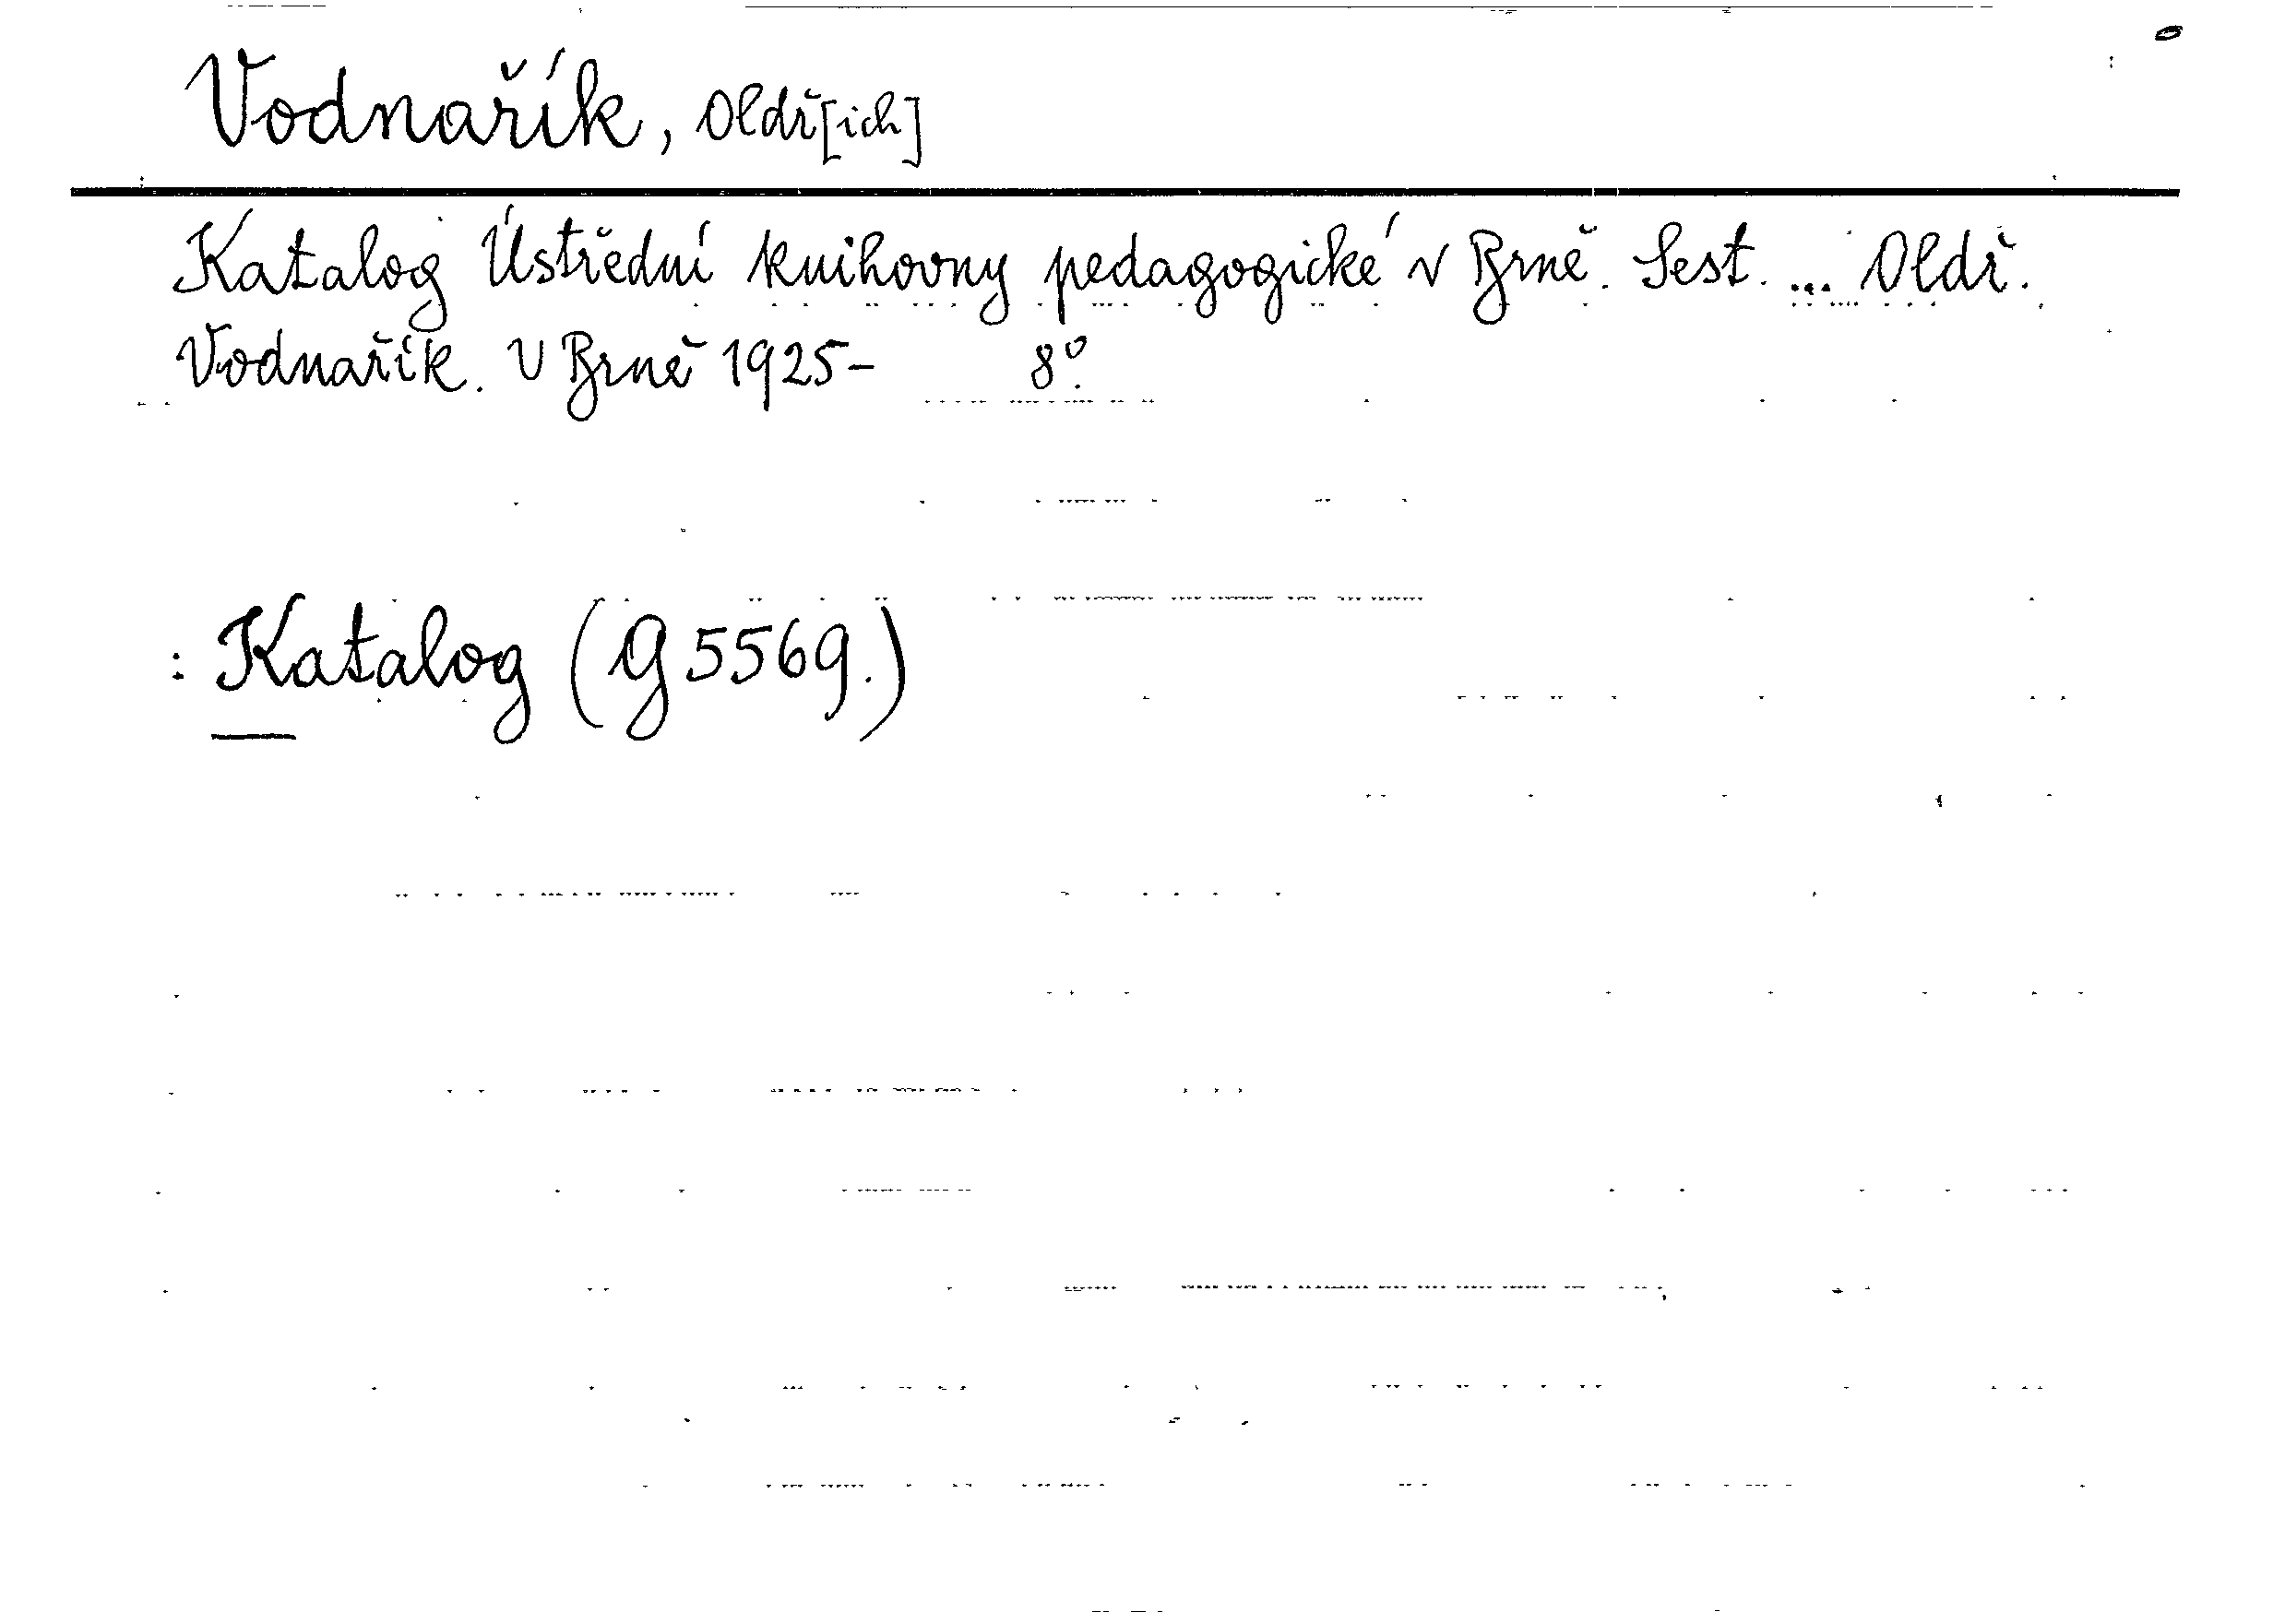 Vodnařík, Oldř[ich]
Katalog Ústřední knihovny pedagogické v Brně. Sest. ... Oldř.
Vodnařík. V Brně 1925- 8°.
: Katalog (G 5569.)